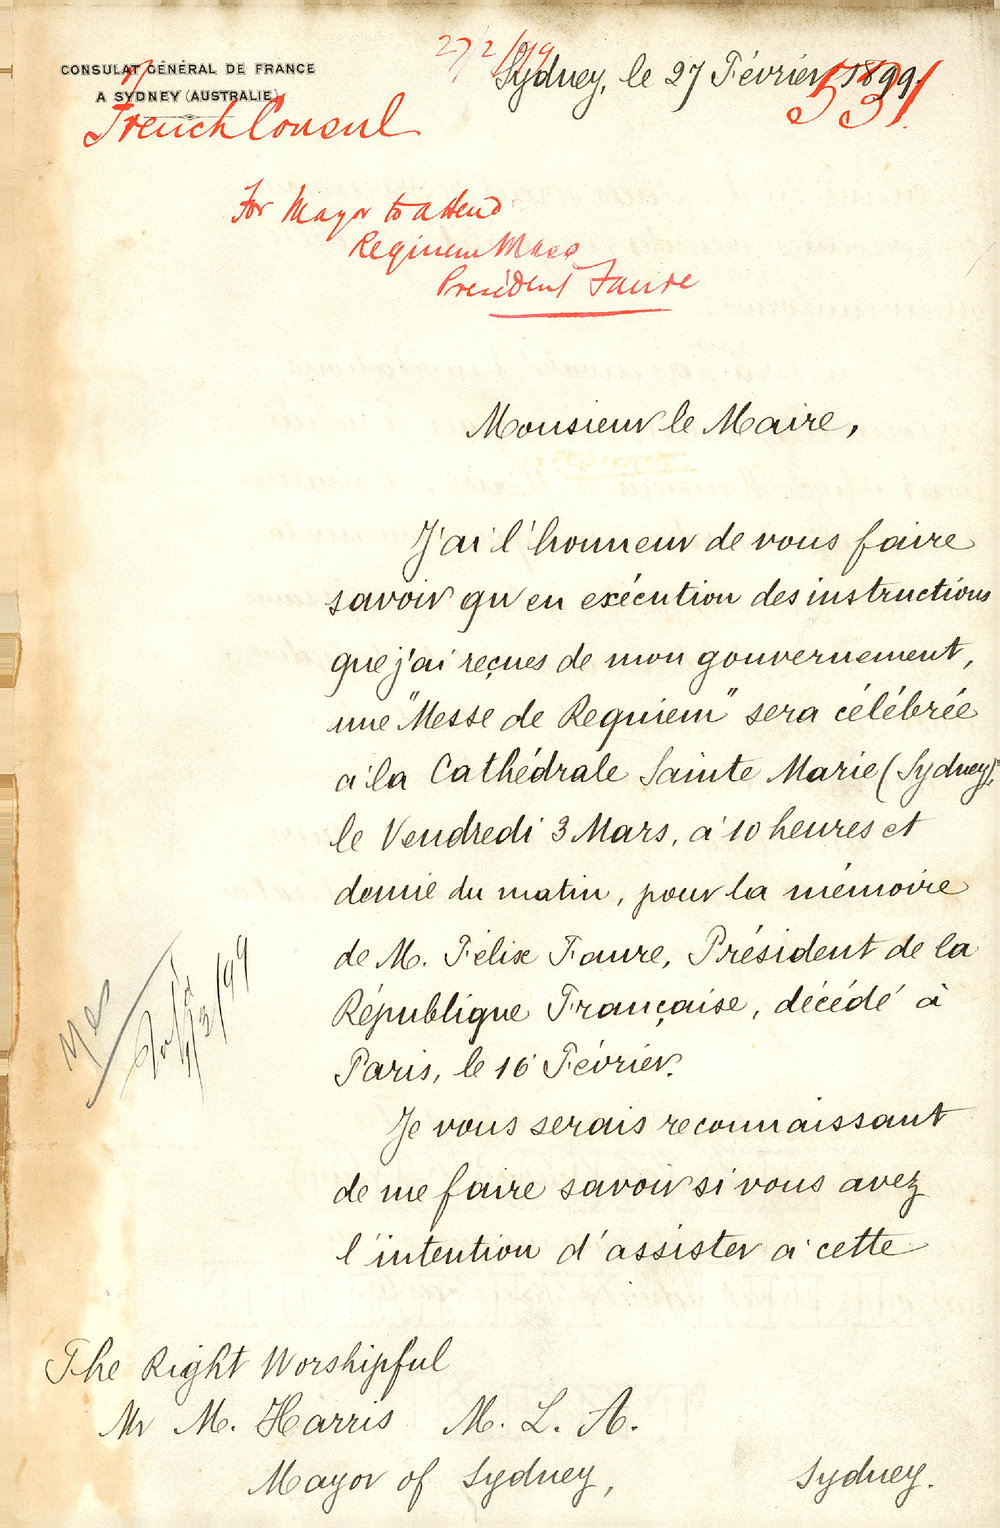 CONSULAT GÉNÉRAL DE FRANCE
A SYDNEY (AUSTRALIE)
French Consul
27/2/99
Sydney, le 27 Février 1899.
531
For Mayor to attend
Requiem Mass
President Faure
Monsieur le Maire,
J'ai l'honneur de vous faire
savoir qu'en exécution des instructions
que j'ai reçues de mon gouvernement,
une "Messe de Requiem" sera célébrée
à la Cathédrale Sainte Marie (Sydney),
le Vendredi 3 Mars, à 10 heures et
demie du matin, pour la mémoire
de M. Félix Faure, Président de la
République Française, décédé à
Paris, le 16 Février.
Je vous serais reconnaissant
de me faire savoir si vous avez
l'intention d'assister à cette
Yes
The Right Worshipful
Mr M. Harris M. L. A.
Mayor of Sydney,
Sydney.